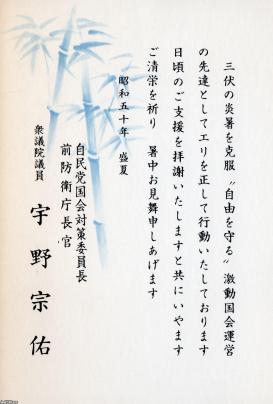 三伏の炎暑を克服 〝自由を守る〟激動国会運営
の先達としてエリを正して行動いたしております
日頃のご支援を拝謝いたしますと共にいやます
ご清栄を祈り 暑中お見舞申しあげます
昭和五十年 盛夏
自民党国会対策委員長
前防衛庁長官
衆議院議員 宇野宗佑